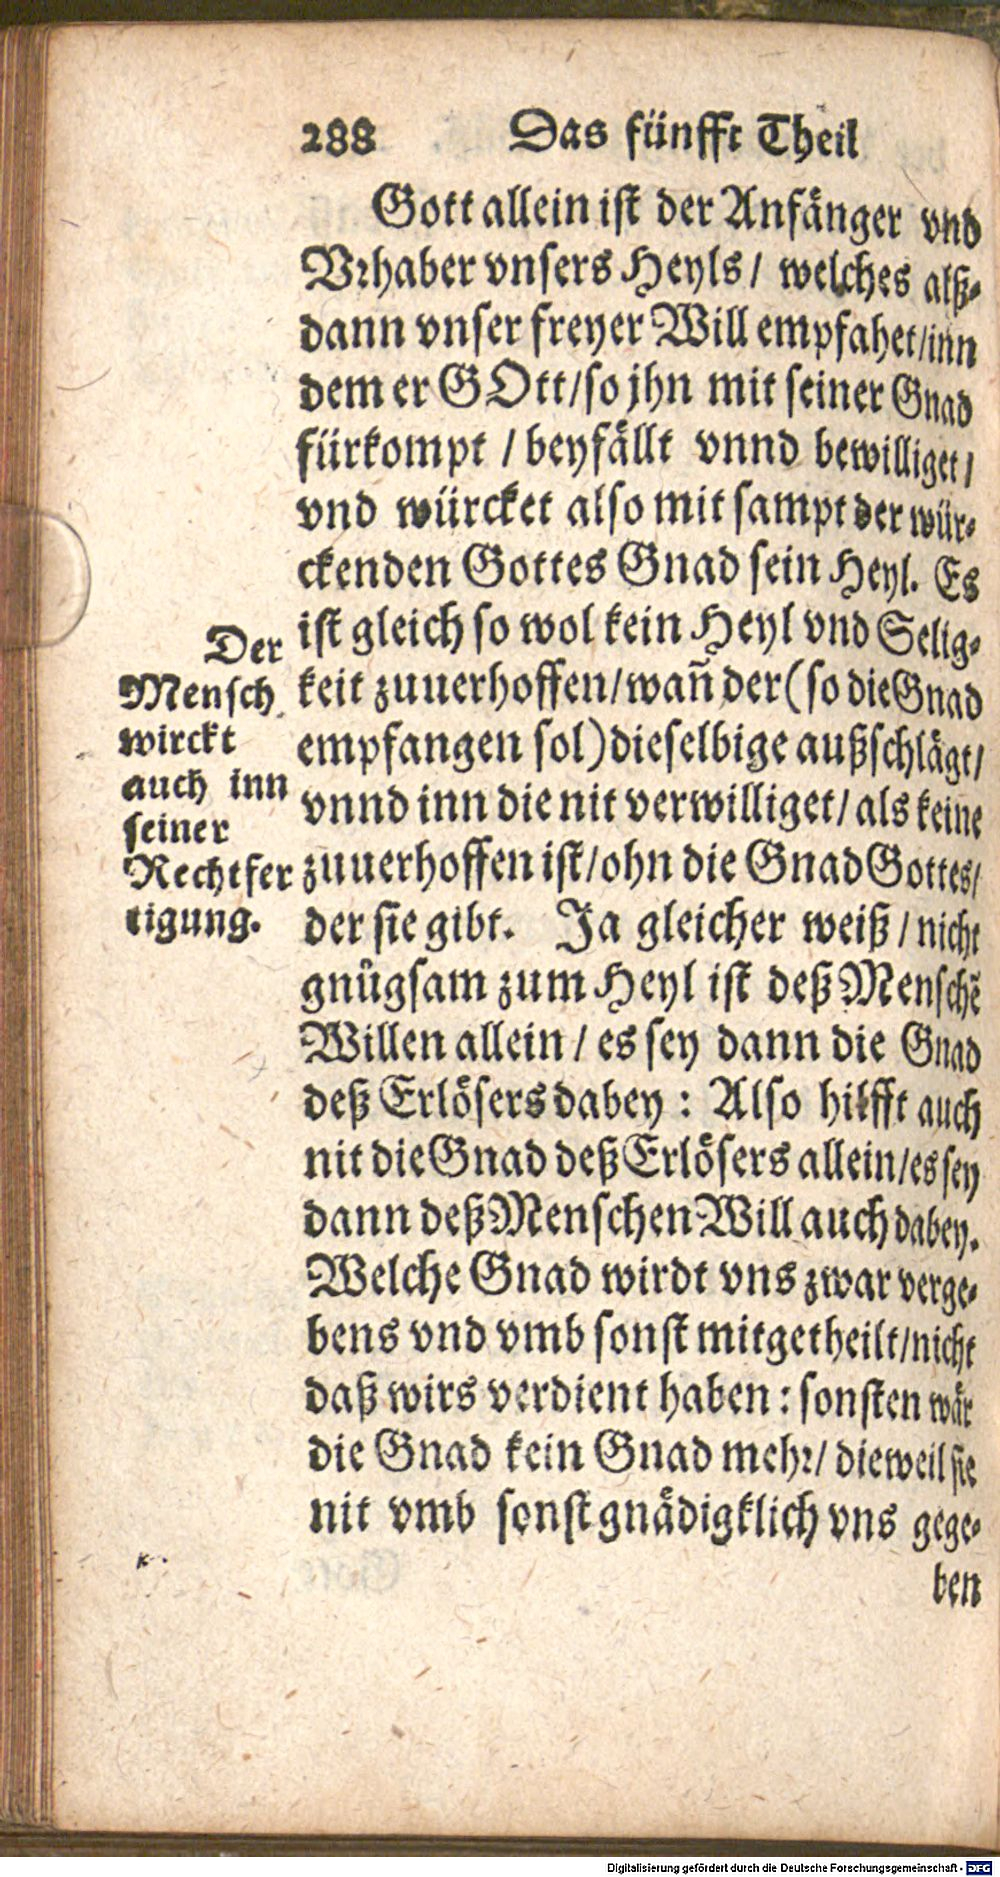 288 Das fünfft Theil
Gott allein ist der Anfänger vnd
Vrhaber vnsers Heyls / welches alß-
dann vnser freyer Will empfahet / inn
dem er GOtt / so jhn mit seiner Gnad
fürkompt / beyfällt vnnd bewilliget /
vnd würcket also mit sampt der wür-
ckenden Gottes Gnad sein Heyl. Es
ist gleich so wol kein Heyl vnd Selig-
keit zuuerhoffen / wañ der (so die Gnad
empfangen sol) dieselbige außschlägt /
vnnd inn die nit verwilliget / als keine
zuuerhoffen ist / ohn die Gnad Gottes /
der sie gibt. Ja gleicher weiß / nicht
gnůgsam zum Heyl ist deß Menschẽ
Willen allein / es sey dann die Gnad
deß Erlösers dabey : Also hilfft auch
nit die Gnad deß Erlösers allein / es sey
dann deß Menschen Will auch dabey.
Welche Gnad wirdt vns zwar verge-
bens vnd vmb sonst mitgetheilt / nicht
daß wirs verdient haben : sonsten wår
die Gnad kein Gnad mehr / dieweil sie
nit vmb sonst gnädigklich vns gege-
ben
Der
Mensch
wirckt
auch inn
seiner
Rechtfer
tigung.
Digitalisierung gefördert durch die Deutsche Forschungsgemeinschaft - DFG